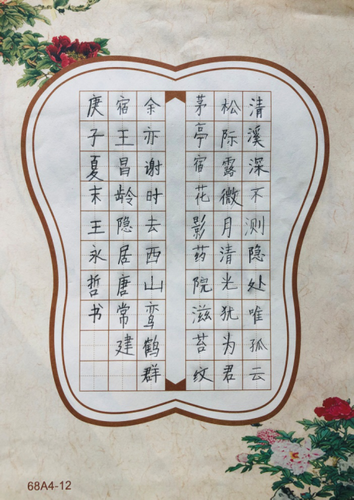 清溪深不测隐处唯孤云
松际露微月清光犹为君
茅亭宿花影药院滋苔纹
余亦谢时去西山鸾鹤群
宿王昌龄隐居唐常建
庚子夏末王永哲书
68A4-12